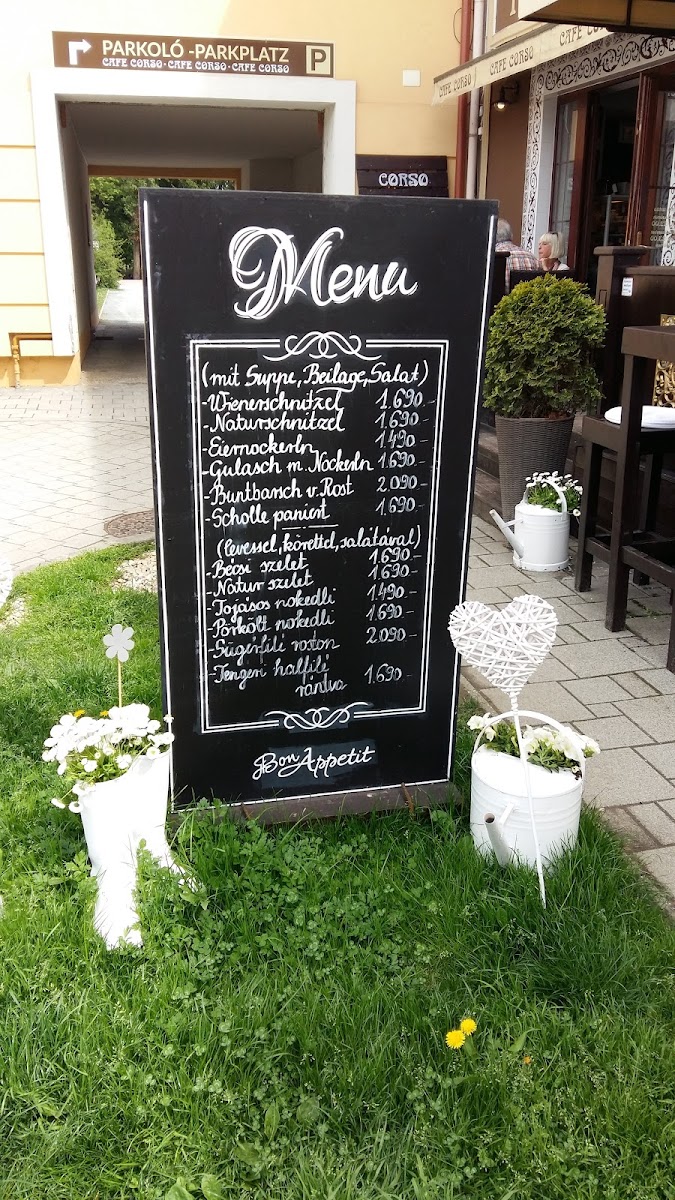 PARKOLÓ - PARKPLATZ P
CAFE CORSO · CAFE CORSO · CAFE CORSO
CAFE CORSO CAFE CORSO CAFE CORSO
CORSO
Menu
(mit Suppe, Beilage, Salat)
- Wienerschnitzel 1.690.-
- Naturschnitzel 1.690.-
- Eiernockerln 1.490.-
- Gulasch m. Nockerln 1.690.-
- Buntbarsch v. Rost 2.090.-
- Scholle paniert 1.690.-
(levessel, körettel, salátával)
- Bécsi szelet 1.690.-
- Natur szelet 1.690.-
- Tojásos nokedli 1.490.-
- Pörkölt nokedli 1.690.-
- Sügérfilé roston 2.090.-
- Tengeri halfilé
rántva 1.690.-
Bon Appetit